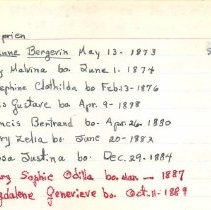 prien
nne Bergerin May 13 - 1873
y Malvina bo. June 1 - 1874
ephine Clothilda bo Feb 13 - 1876
is Gustave bo Apr. 9 - 1878
ncis Bertrand bo. Apr. 26 - 1880
ry Zelia bo June 20 - 1882
sa Justina bo Dec. 29 - 1884
ry Sophie Odilia bo. Jan — 1887
gdalene Genevieve bo Oct. 11 - 1889